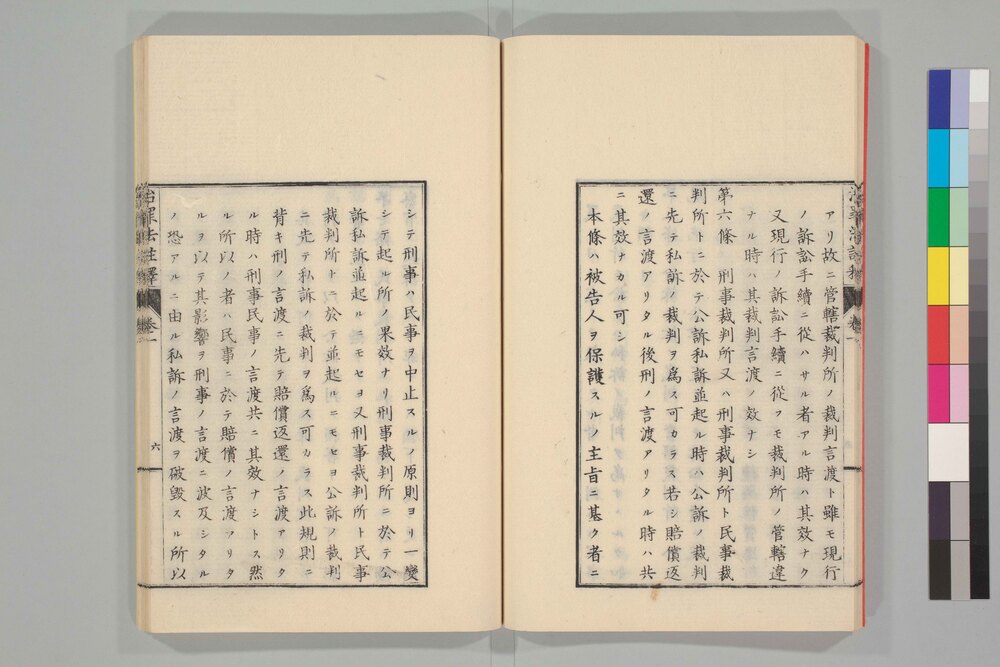 アリ故ニ管轄裁判所ノ裁判言渡ト雖モ現行
ノ訴訟手續ニ從ハサル者アル時ハ其效ナク
又現行ノ訴訟手續ニ從フモ裁判所ノ管轄違
ナル時ハ其裁判言渡ノ效ナシ
第六條 刑事裁判所又ハ刑事裁判所ト民事裁
判所トニ於テ公訴私訴並起ル時ハ公訴ノ裁判
ニ先テ私訴ノ裁判ヲ爲ス可カラス若シ賠償返
還ノ言渡アリタル後刑ノ言渡アリタル時ハ共
ニ其效ナカル可シ
本條ハ被告人ヲ保護スルノ主旨ニ基ク者ニ
シテ刑事ハ民事ヲ中止スルノ原則ヨリ一變
シテ起ル所ノ果效ナリ刑事裁判所ニ於テ公
訴私訴並起ルニモセヨ又刑事裁判所ト民事
裁判所トニ於テ並起ルニモセヨ公訴ノ裁判
ニ先テ私訴ノ裁判ヲ爲ス可カラス此規則ニ
背キ刑ノ言渡ニ先テ賠償返還ノ言渡アリタ
ル時ハ刑事民事ノ言渡共ニ其效ナシトス然
ル所以ノ者ハ民事ニ於テ賠償ノ言渡アリタ
ルヲ以テ其影響ヲ刑事ノ言渡ニ波及シタル
ノ恐アルニ由ル私訴ノ言渡ヲ破毀スル所以
治罪法註釋 卷一
六